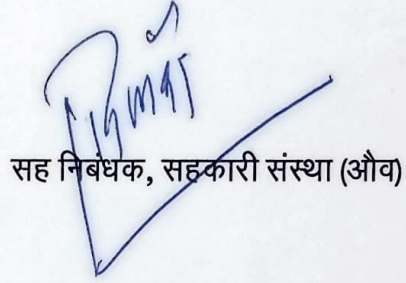 सह निबंधक, सहकारी संस्था (औव)